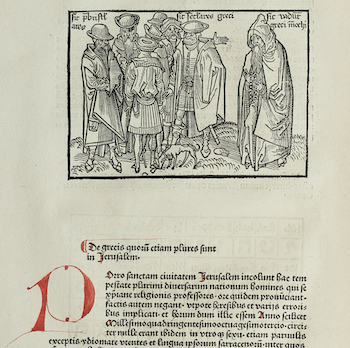 Sic pbristi Sic seclares greci Sic vadūt
ates greci mōchi
De grecis quorū etiam plures sunt
in Jerusalem.
POrro sanctam civitatem Jerusalem incolunt hac tem
pestate plurimi diversarum nationum homines qui se
xpiane religionis professores ore quidem pronūciant.
factis autem negant. utpote heresibus et varijs errori-
bus implicati. et horum dum illic essem Anno scilicet
Millesimoquadringentesimooctuagesimotercio. circi-
ter mille erant ibidem in vtroqȝ sexu. etiam parvulis
exceptis. ydiomate vtentes et lingua ipsorum sarracenorū. inter quos